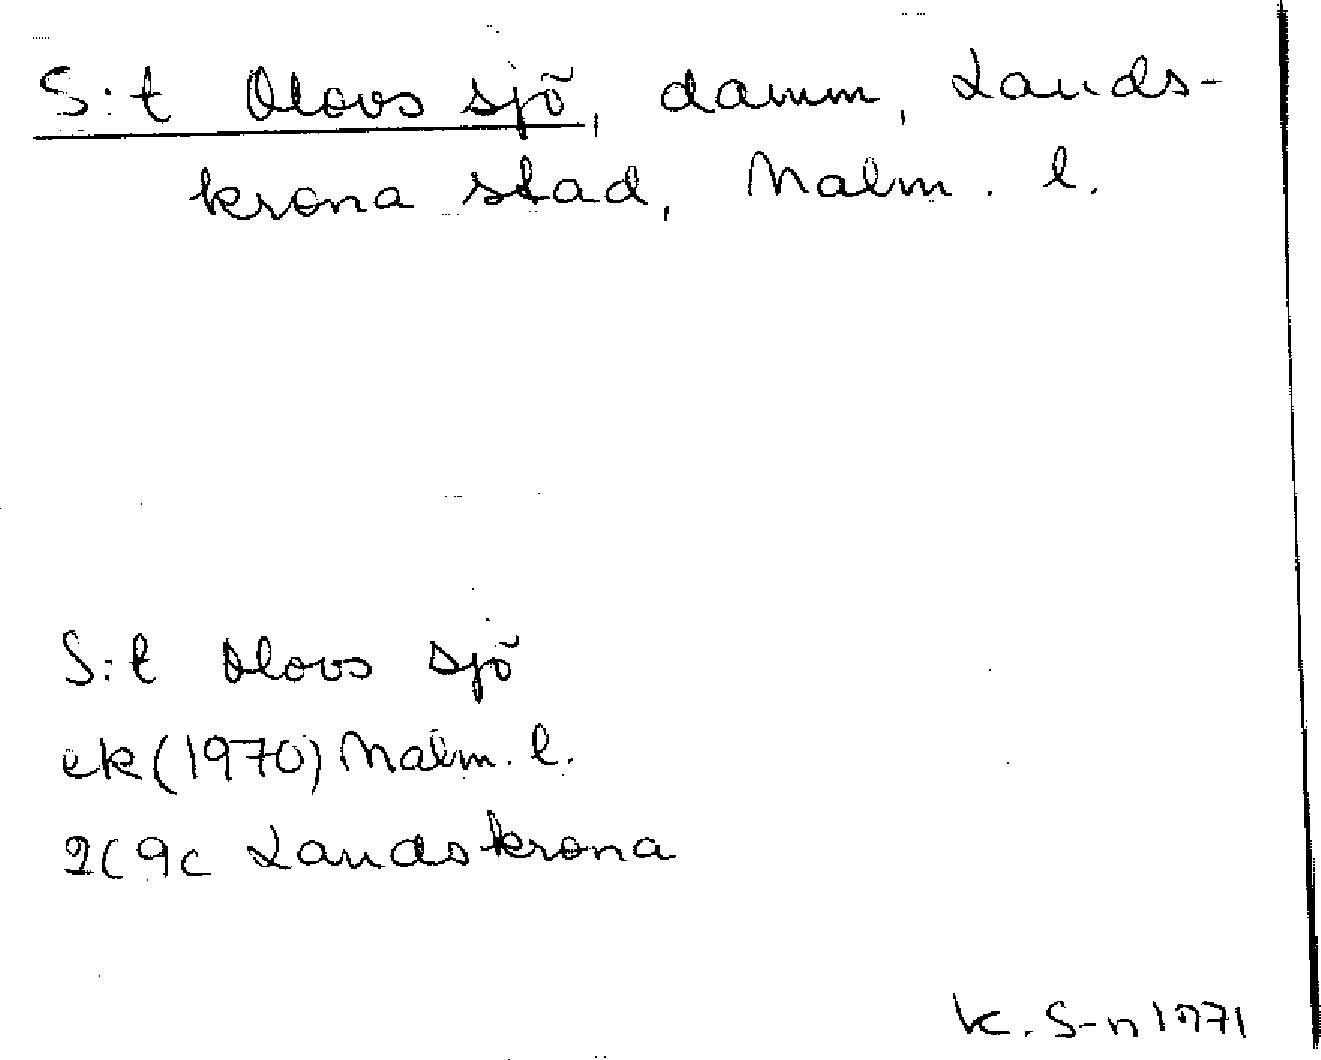 S:t Olovs sjö, damm, Lands-
krona stad, Malm. l.
S:t Olovs sjö
ek (1970) Malm. l.
2C 9c Landskrona
K. S-n 1971